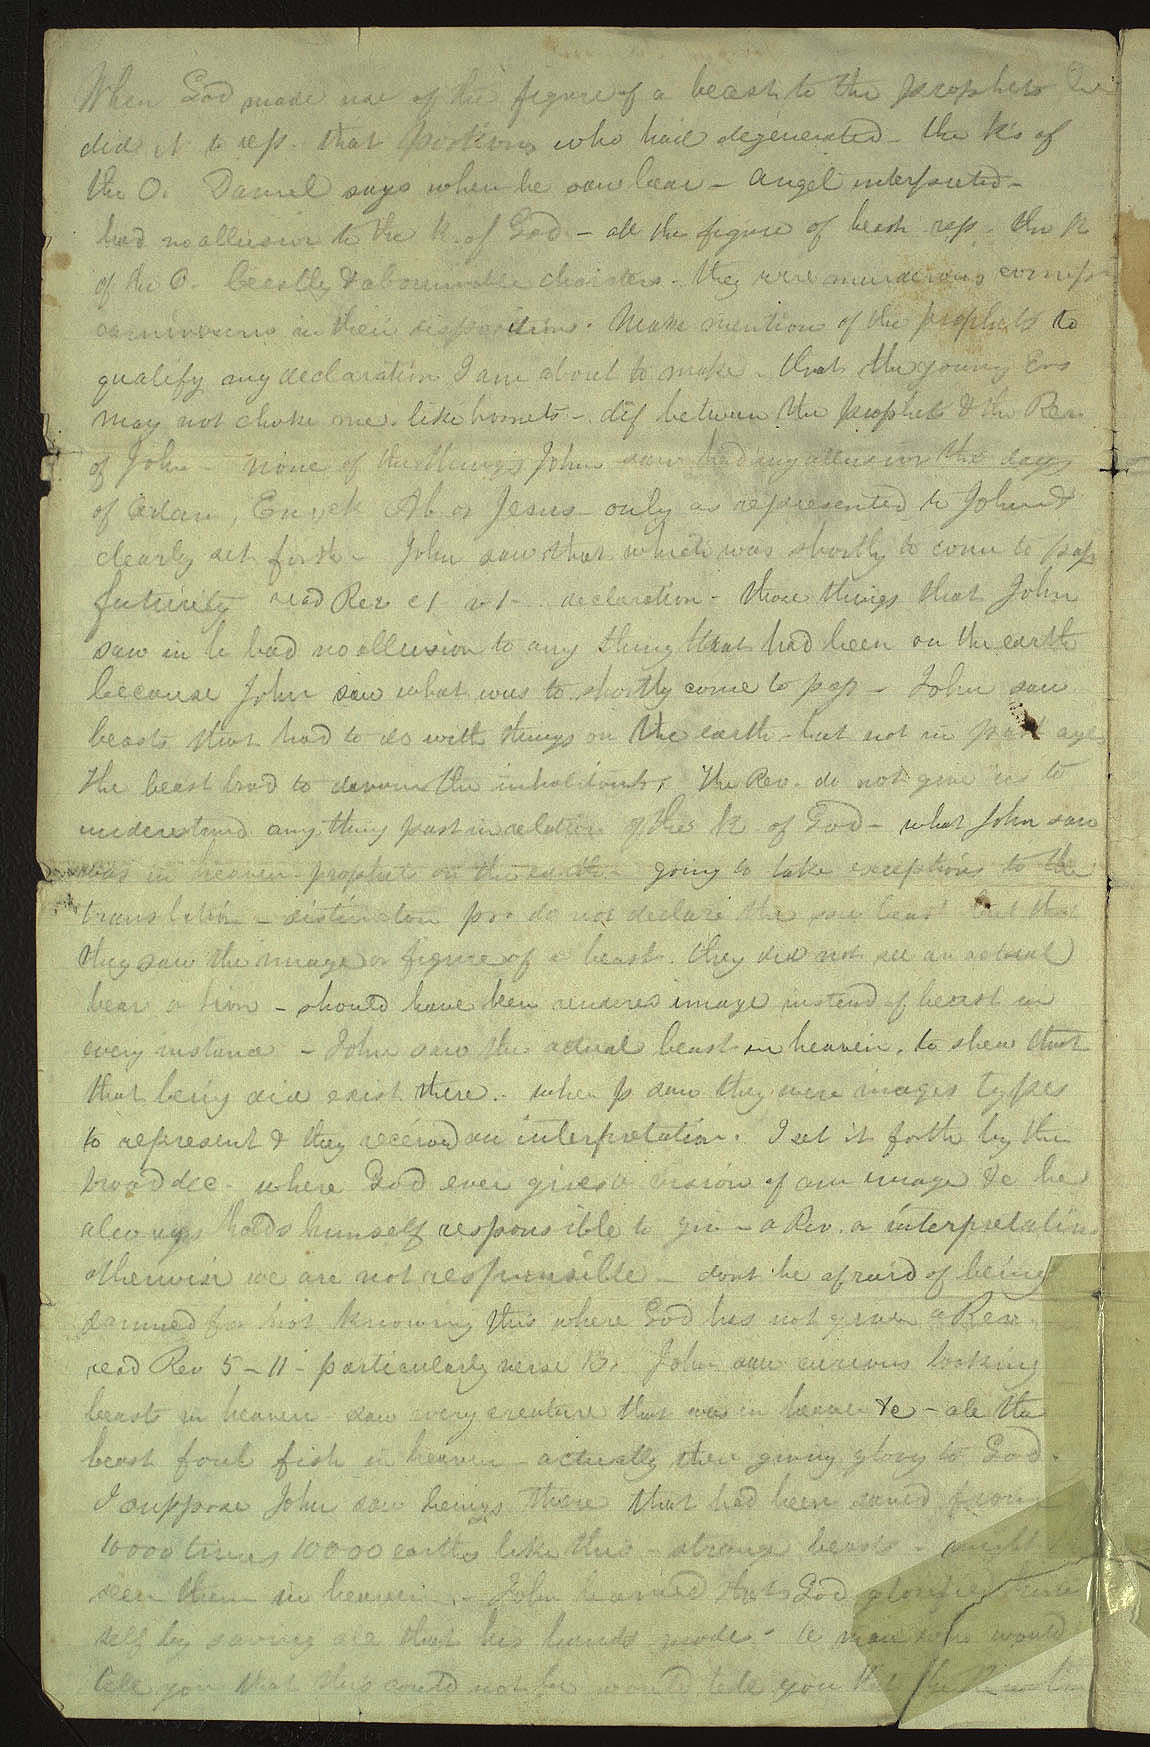 When God made use of the figure of a beast to the prophets he
did it to rep. that portions who had degenerated – the K's of
the O. Daniel says when he saw bear – angel interpreted –
had no allusion to the K. of God – all the figure of beast rep. the K
of the O. beastly & abominable characters. they were murderous corrupt
carniverous in their dispositions. Make mention of the prophets to
qualify my declaration I am about to make – that the young Ers
may not choke me like hornets – dif between the prophets & the Rev
of John – none of the things John saw had any allusion the days
of Adam, Enock Ab or Jesus – only as represented to John &
clearly set forth – John saw that which was shortly to come to pass
futurity read Rev c1 v1 – declaration – those things that John
saw in h had no allusion to any thing that had been on the earth
because John saw what was to shortly come to pass – John saw
beasts that had to do with things on the earth – but not in past ages
the beast had to devour the inhabitants, The Rev. do not give us to
understand any thing past in relation of the K of God – what John saw
was in heaven – prophets on the earth – going to take exceptions to the
translation – distinction pro do not declare the saw beast but that
they saw the image or figure of a beast. they did not see an actual
bear or lion – should have been rendered image instead of beast in
every instance – John saw the actual beast in heaven, to shew that
that being did exist there. – when p saw they were images types
to represent & they received an interpretation. I set it forth by the
broad dec – where God ever gives a vision of an image &c he
always holds himself responsible to give – a Rev. or interpretation
otherwise we are not responsible – dont be afraid of being
damned for not knowing this where God has not given a Rev.
read Rev 5 – 11 – particularly verse 13. John saw curious looking
beasts in heaven saw every creature that was in heaven &c – all the
beast foul fish in heaven – actually there giving glory to God.
I suppose John saw beings there that had been saved from
10000 times 10000 earths like this – strange beasts – might be
seen them in heaven. – John learned that God glorified him
self by saving all that his hands made – A man who would
tell you that this could not be would tell you that the